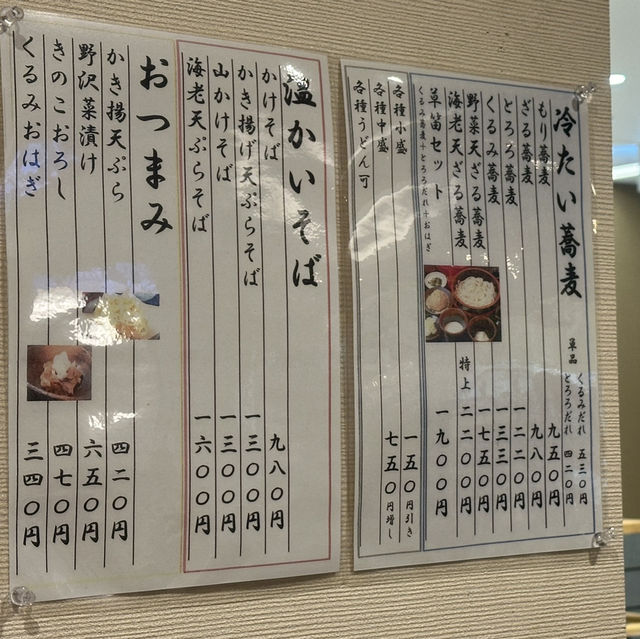 冷たい蕎麦
単品 くるみだれ 五三〇円
とろろだれ 四二〇円
もり蕎麦 九五〇円
ざる蕎麦 九八〇円
とろろ蕎麦 一二二〇円
くるみ蕎麦 一三三〇円
野菜天ざる蕎麦 一七五〇円
海老天ざる蕎麦 特上 二二〇〇円
草笛セット 一九〇〇円
くるみ蕎麦+とろろだれ+おはぎ
各種小盛 一五〇円引き
各種中盛 七五〇円増し
各種うどん可
温かいそば
かけそば 九八〇円
かき揚げ天ぷらそば 一三〇〇円
山かけそば 一三〇〇円
海老天ぷらそば 一六〇〇円
おつまみ
かき揚天ぷら 四二〇円
野沢菜漬け 六五〇円
きのこおろし 四七〇円
くるみおはぎ 三四〇円